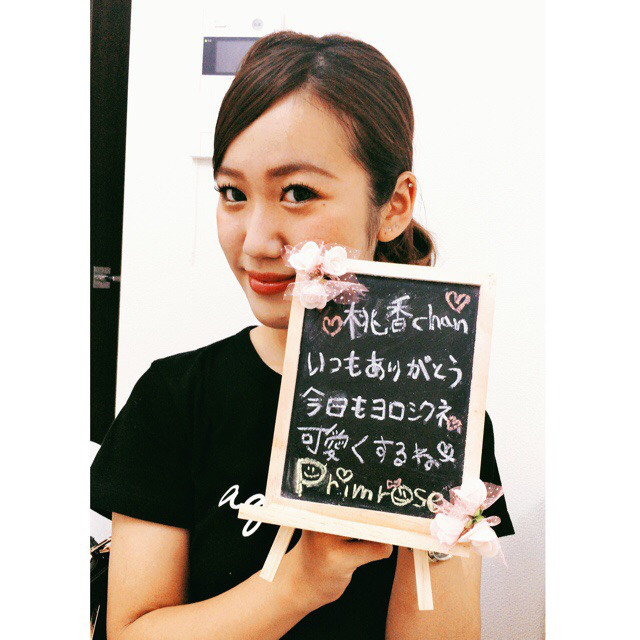 ♡桃香chan♡
いつもありがとう
今日もヨロシクネ♡
可愛くするね♡
Primrose